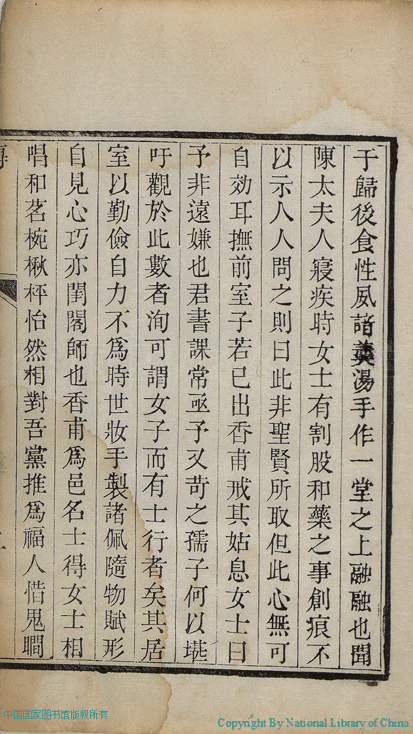 于歸後食性夙諳羹湯手作一堂之上融融也聞
陳太夫人寢疾時女士有割股和藥之事創痕不
以示人人問之則曰此非聖賢所取但此心無可
自效耳撫前室子若已出香甫戒其姑息女士曰
予非遠嫌也君書課常亟予又苛之孺子何以堪
吁觀於此數者洵可謂女子而有士行者矣其居
室以勤儉自力不爲時世妝手製諸佩隨物賦形
自見心巧亦閨閣師也香甫爲邑名士得女士相
唱和茗椀楸枰怡然相對吾黨推爲福人惜鬼瞷
中国国家图书馆版权所有
Copyright By National Library of China